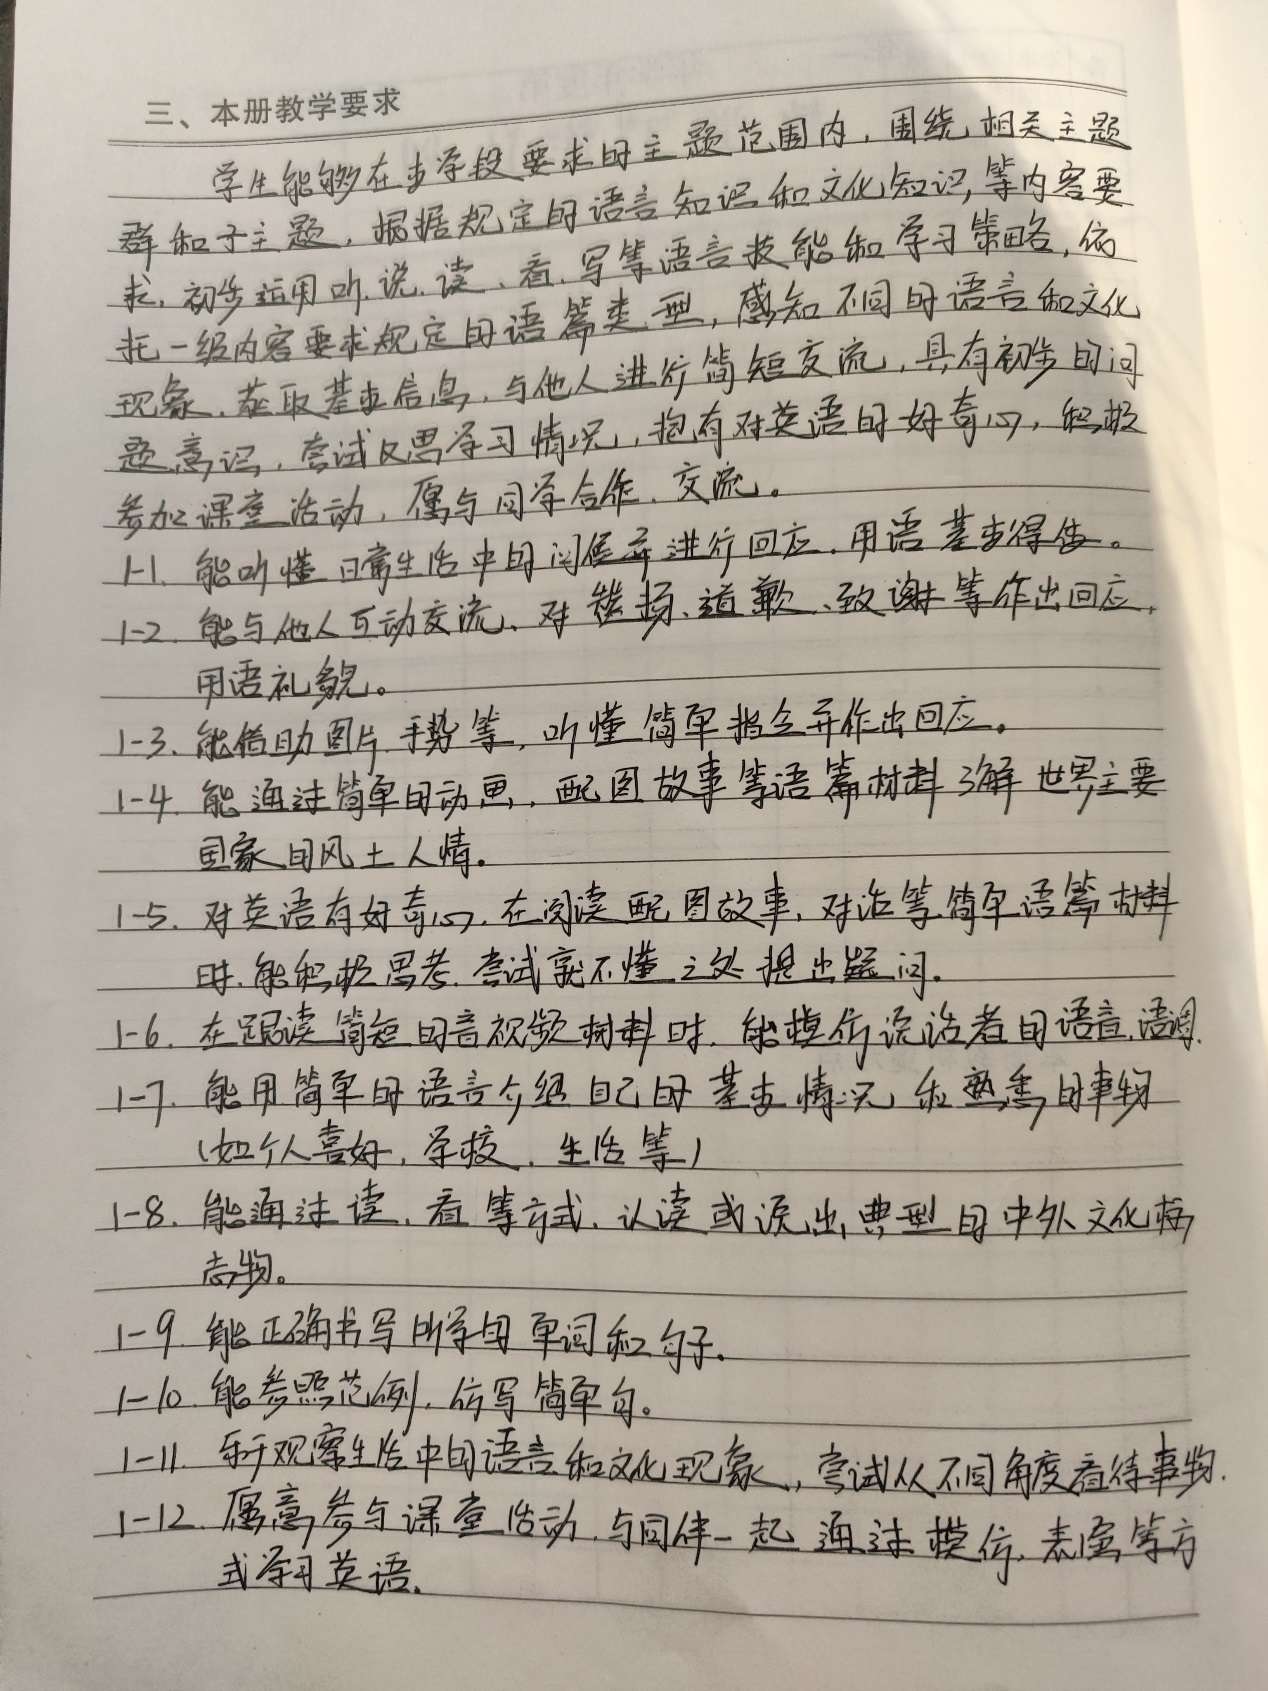 三、本册教学要求
学生能够在本学段要求的主题范围内，围绕相关主题
群和子主题，根据规定的语言知识和文化知识等内容要
求，初步运用听、说、读、看、写等语言技能和学习策略，依
托一级内容要求规定的语篇类型，感知不同的语言和文化
现象，获取基本信息，与他人进行简短交流，具有初步的问
题意识，尝试反思学习情况，抱有对英语的好奇心，积极
参加课堂活动，愿与同学合作、交流。
1-1. 能听懂日常生活中的问候并进行回应，用语基本得体。
1-2. 能与他人互动交流，对赞扬、道歉、致谢等作出回应，
用语礼貌。
1-3. 能借助图片、手势等，听懂简单指令并作出回应。
1-4. 能通过简单的动画、配图故事等语篇材料了解世界主要
国家的风土人情。
1-5. 对英语有好奇心，在阅读配图故事、对话等简单语篇材料
时，能积极思考，尝试就不懂之处提出疑问。
1-6. 在跟读简短的音视频材料时，能模仿说话者的语音、语调.
1-7. 能用简单的语言介绍自己的基本情况和熟悉的事物
（如个人喜好、学校、生活等）
1-8. 能通过读、看等方式，认读或说出典型的中外文化标
志物。
1-9. 能正确书写所学的单词和句子.
1-10. 能参照范例，仿写简单句。
1-11. 乐于观察生活中的语言和文化现象，尝试从不同角度看待事物.
1-12. 愿意参与课堂活动，与同伴一起通过模仿、表演等方
式学习英语.